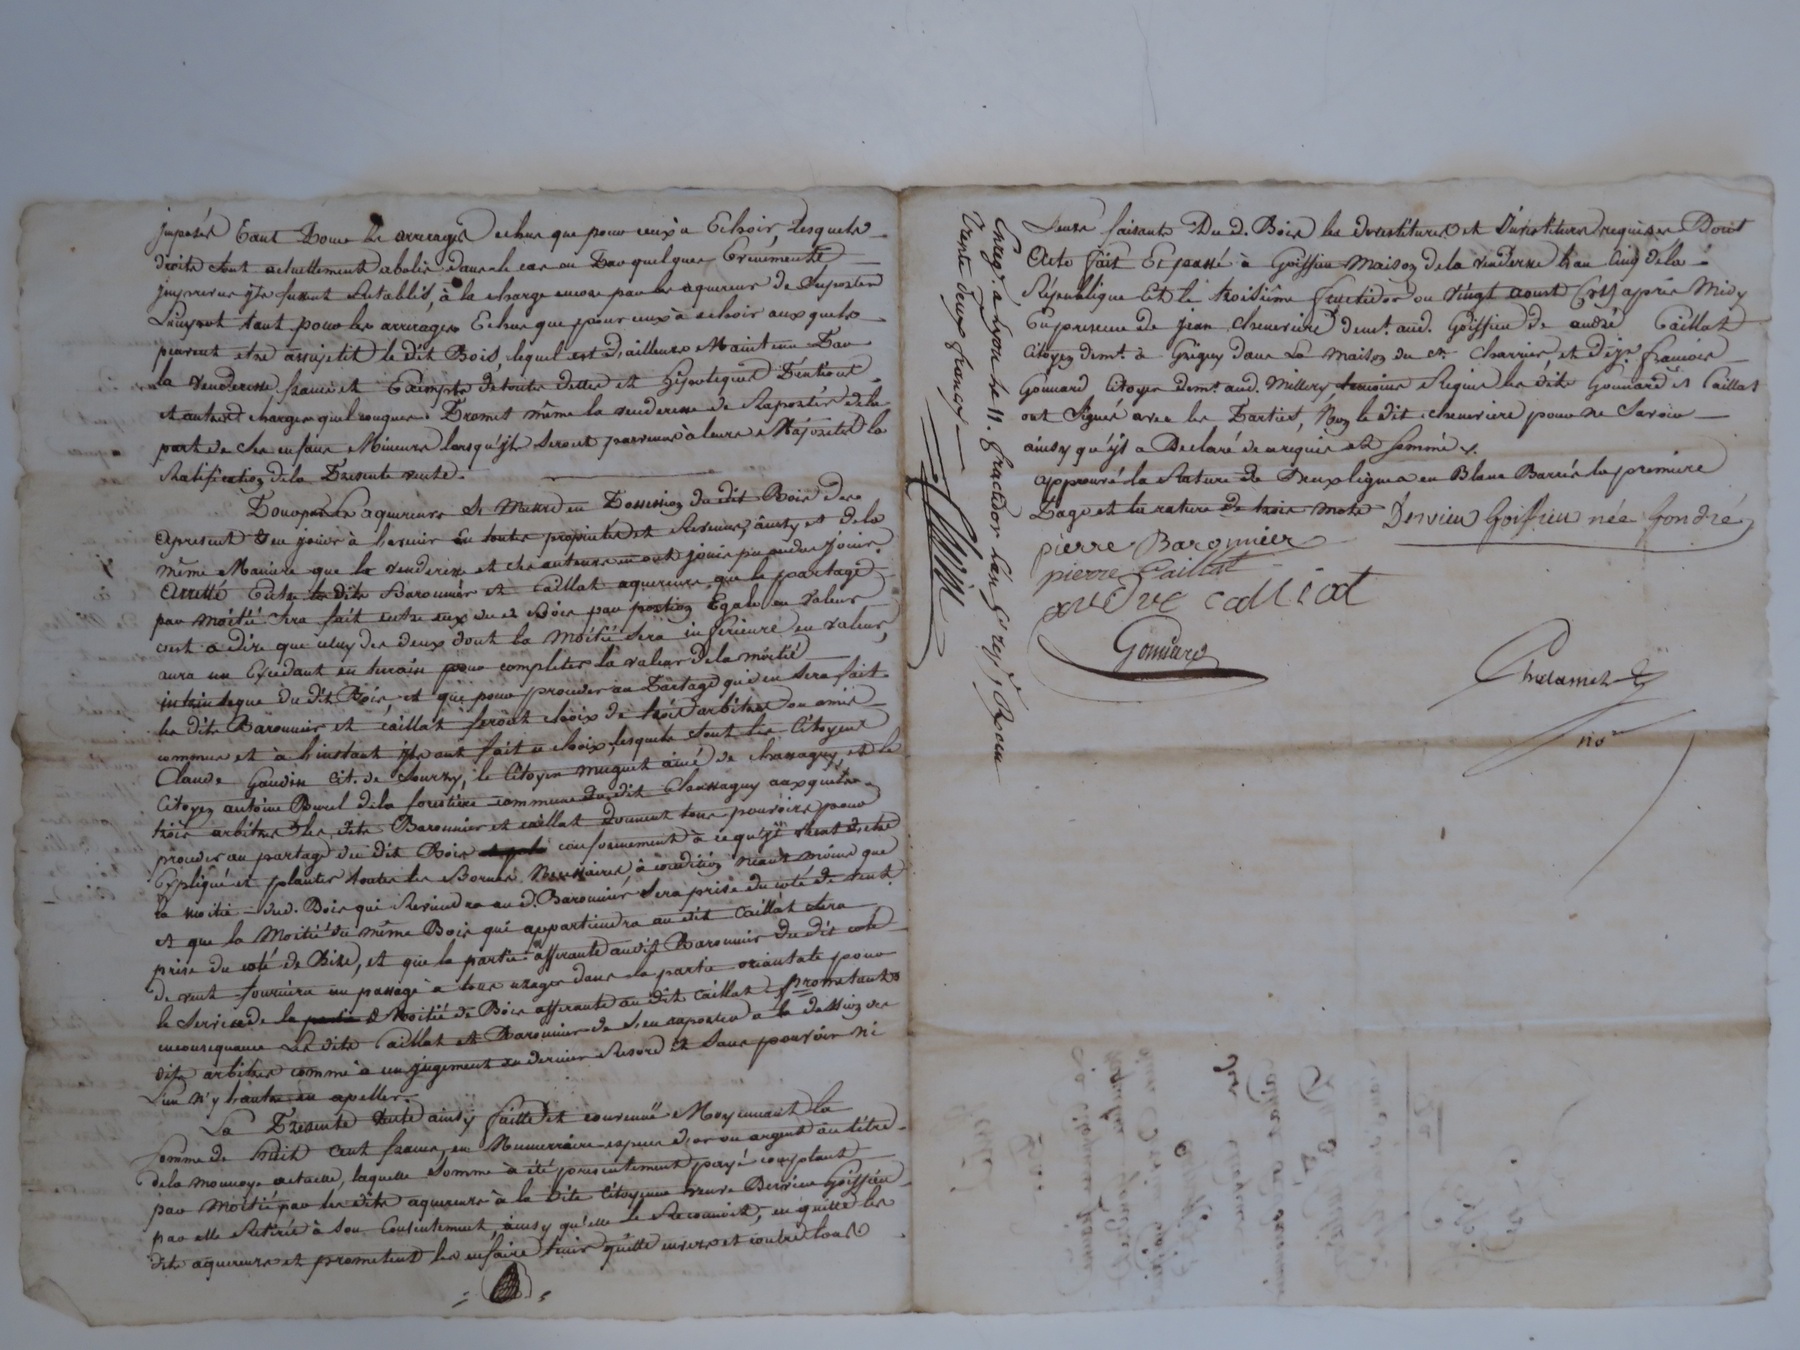 imposés tant pour les arrerages echus que pour ceux à Echoir, lesquels
droits sont actuellement abolis dans le cas ou par quelques Evénements
imprevus ils fussent Retablis, à la charge encore par les aquereurs de suporter
L'impot tant pour les arrerages Echus que pour ceux à echoir auxquels
peuvent etre assujetit le dit Bois, lequel est d'ailleurs Maintenu Par
la venderesse franc et Exempte de toutes dettes et hipotèques
et autres charges quelconques. Promet même la venderesse de Raporter de la
part de ses enfans Mineurs lorsqu'ils seront parvenus à leurs Majorités la
Ratification de la Presente vente.
Pour par les aquereurs se Mettre en Possession du dit Bois des
apresent en jouir à l'avenir en toutes proprietés et Revenus, ainsy et de la
même Maniere que la venderesse et ses auteurs en ont jouis pu ou dus jouir.
Arretté Entre les dits Baronnier et Caillat aquereurs, que le partage
par moitié sera fait entre eux du d. Bois par portion Egale en valeur
c'est a dire que celuy des deux dont la Moitié sera inferieure en valeur,
aura un Excedant en terrain pour completer la valeur de la moitié
intrinseque du dit Bois, et que pour proceder au Partage qui en sera fait
les dits Baronnier et caillat feront choix de trois arbitres ou amis
communs et à l'instant ils ont fait ce choix, lesquels sont les Citoyens
Claude Gaudin Cit. de Sourzy, le Citoyen muguet ainé de chassagny, et le
Citoyen antoine Burel de la forestiere commune du dit Chassagny auxquels
trois arbitres les dits Baronnier et caillat donnent tous pouvoirs pour
proceder au partage du dit Bois conformement à ce qu'il vient d'etre
Expliqué et planter toutes les Bornes Necessaires, à condition neant moins que
la moitié du d. Bois qui Reviendra au d. Baronnier sera prise du coté de vent
et que la Moitié du même Bois qui appartiendra au dit Caillat sera
prise du coté de Bize, et que la partie afferante au dit Baronnier du dit coté
de vent fournira un passage à tous usages dans la partie oriantale pour
le service de la Moitié de Bois afferante au dit Caillat, prometants
en consequance Les dits Caillat et Baronnier de s'en raporter a la decision des
dits arbitres comme à un jugement en dernier Resord et sans pouvoir ni
L'un n'y l'autre en apeller.
La Presente vente ainsy faitte et convenuë Moyennant la
somme de huit cent francs, en Numerraire especes d'or ou argent au titre
de la monnoye actuelle, laquelle somme à été presentement payé comptant
par Moitié par les dits aquereurs à la dite Citoyenne veuve Dervieu Goiffieu
par elle Retirée à son Contentement, ainsy qu'elle le Reconnoit, en quitte les
dits aquereurs et prometent les en faire tenir quitte envers et contre tous
Enreg. à Lyon le 11. fructidor l'an 5
vente deux francs
Leurs faisants Du d. Bois les devestitures et Investitures requises Dont
Acte fait Et passé à Goiffieu Maison de la venderesse l'an Cinq de la
République Et le troisième fructidor ou vingt aoust après Midy
En presence de jean cheurière demt. aud. Goiffieu de andré Caillat
Citoyen demt. à Grigny dans La maison du cn. charrier et de françois
Gonnard Citoyen demt. aud. Millery temoins Requis les dits Gonnard et Caillat
ont signés avec les Parties, Non le dit cheurière pour ne savoir
ainsy qu'il a Declaré de ce requis et sommé.
approuvé la Rature de Deux lignes en Blanc Barrés la premiere
Page et la rature de trois mots Dervieu Goiffieu née fondré
pierre Baronnier
pierre Caillat
Gonnard
no.re